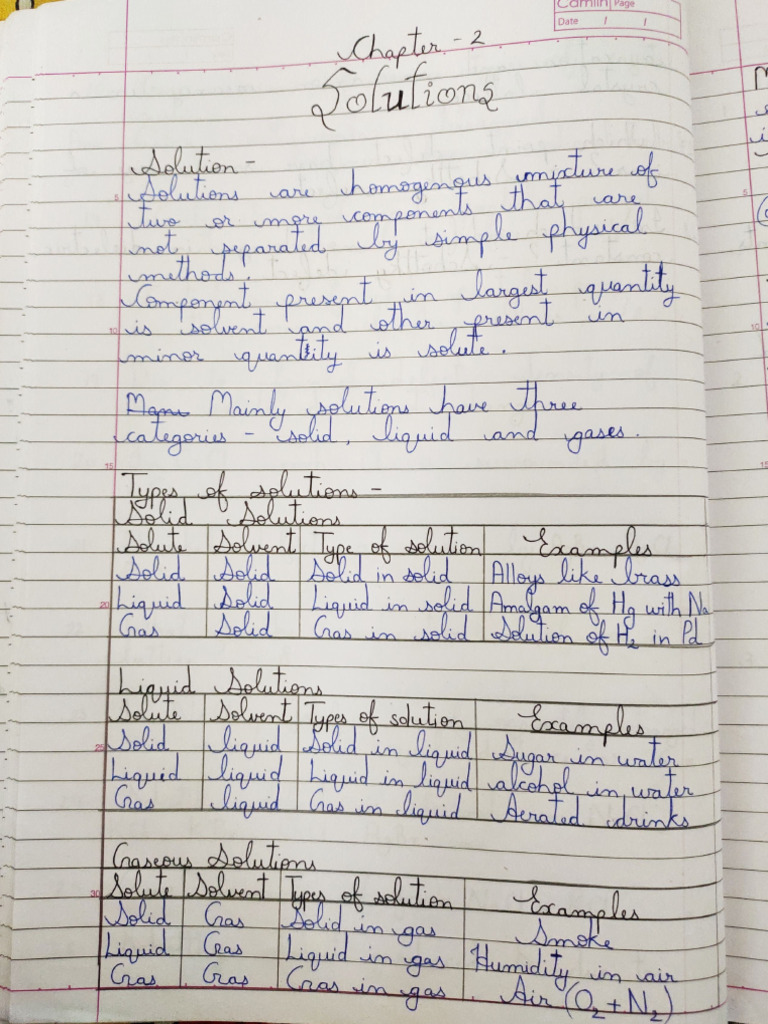 Camlin Page
Date / /
Chapter - 2
Solutions
Solution -
Solutions are homogenous mixture of
two or more components that are
not separated by simple physical
methods.
Component present in largest quantity
is solvent and other present in
minor quantity is solute.
Mainly solutions have three
categories - solid, liquid and gases.
Types of solutions -
Solid Solutions
Solute Solvent Type of solution Examples
Solid Solid Solid in solid Alloys like brass
Liquid Solid Liquid in solid Amalgam of Hg with Na
Gas Solid Gas in solid Solution of H₂ in Pd
Liquid Solutions
Solute Solvent Types of solution Examples
Solid liquid Solid in liquid Sugar in water
Liquid liquid Liquid in liquid alcohol in water
Gas liquid Gas in liquid Aerated drinks
Gaseous Solutions
Solute Solvent Types of solution Examples
Solid Gas Solid in gas Smoke
Liquid Gas Liquid in gas Humidity in air
Gas Gas Gas in gas Air (O₂ + N₂)